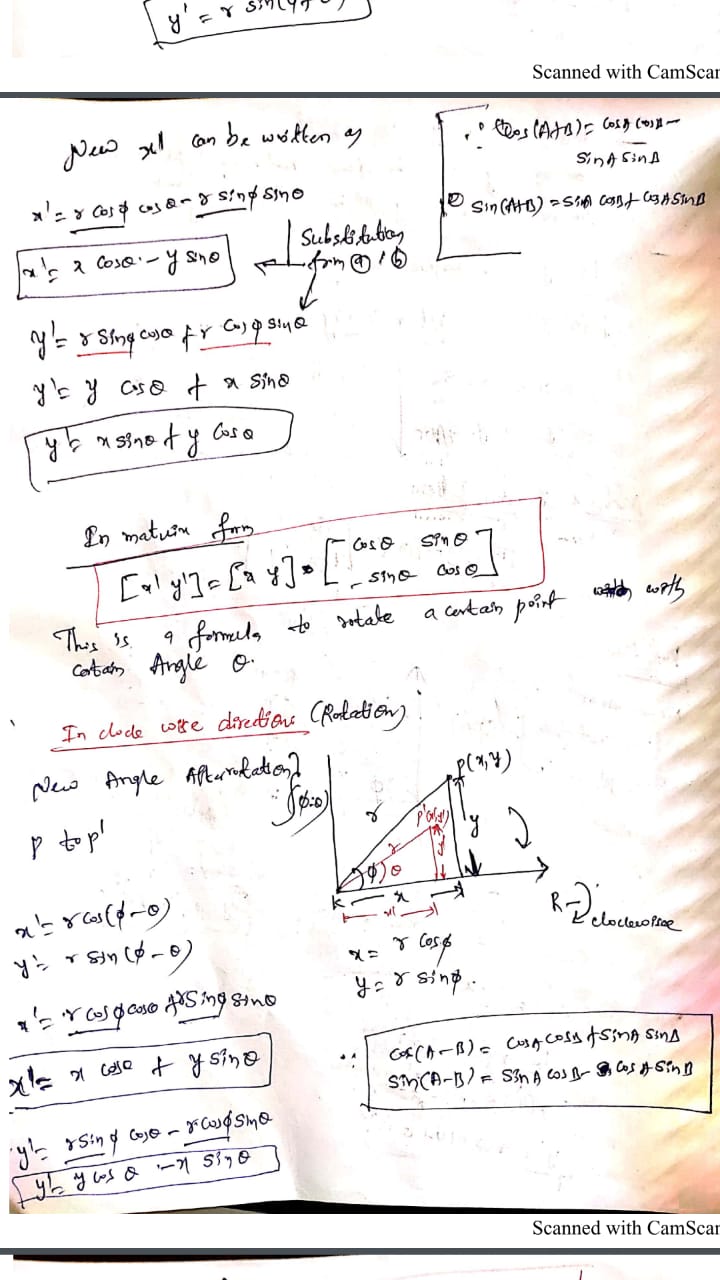 y' = r sin(φ+θ)
Scanned with CamScan
New x' can be written as
∵ Cos(A+B) = CosA CosB −
SinA SinB
x' = r cosφ cosθ − r sinφ sinθ
Sin(A+B) = SinA CosB + CosA SinB
Substituting
from (a) & (b)
x' = x cosθ − y sinθ
y' = r sinφ cosθ + r cosφ sinθ
y' = y cosθ + x sinθ
y' = x sinθ + y cosθ
In matrix form
[x' y'] = [x y] • [cosθ sinθ
−sinθ cosθ]
This is a formula to rotate a certain point with
certain Angle θ.
In clock wise directions (Rotation)
New Angle After rotation
∴ (φ-θ)
P to p'
P(x,y)
r
P'(x',y')
y
r
y'
φ
θ
x
x'
R →
clockwise
x' = r cos(φ−θ)
y' = r sin(φ−θ)
x = r cosφ
y = r sinφ.
x' = r cosφ cosθ + r sinφ sinθ
x' = x cosθ + y sinθ
∴ cos(A−B) = cosA cosB + sinA sinB
sin(A−B) = sinA cosB − cosA sinB
y' = r sinφ cosθ − r cosφ sinθ
y' = y cosθ − x sinθ
Scanned with CamScan